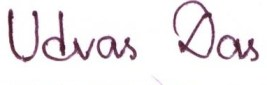 Udvas Das